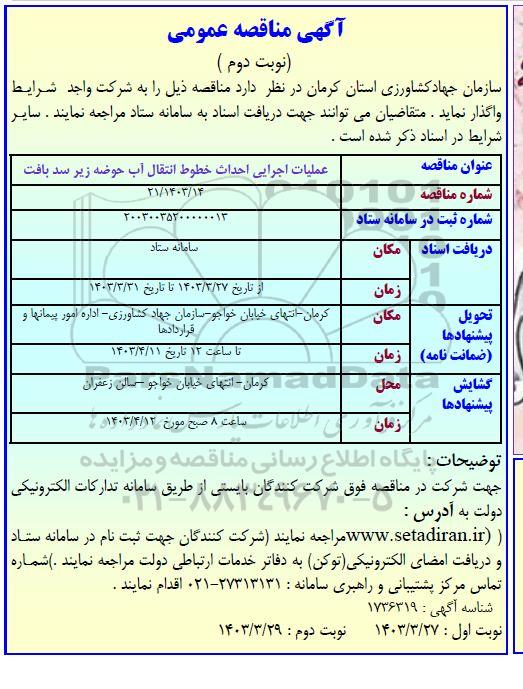 آگهی مناقصه عمومی
(نوبت دوم )
سازمان جهادکشاورزی استان کرمان در نظر دارد مناقصه ذیل را به شرکت واجد شرایط
واگذار نماید . متقاضیان می توانند جهت دریافت اسناد به سامانه ستاد مراجعه نمایند . سایر
شرایط در اسناد ذکر شده است .
عنوان مناقصه عملیات اجرایی احداث خطوط انتقال آب حوضه زیر سد بافت
شماره مناقصه ۲۱/۱۴۰۳/۱۴
شماره ثبت در سامانه ستاد ۲۰۰۳۰۰۳۵۲۰۰۰۰۰۰۱۳
دریافت اسناد مکان سامانه ستاد
زمان از تاریخ ۱۴۰۳/۳/۲۷ تا تاریخ ۱۴۰۳/۳/۳۱
تحویل پیشنهادها (ضمانت نامه) مکان کرمان-انتهای خیابان خواجو-سازمان جهاد کشاورزی- اداره امور پیمانها و
قراردادها
زمان تا ساعت ۱۲ تاریخ ۱۴۰۳/۴/۱۱
گشایش پیشنهادها محل کرمان- انتهای خیابان خواجو –سالن زعفران
زمان ساعت ۸ صبح مورخ ۱۴۰۳/۴/۱۲
ParsNamadData
پایگاه اطلاع رسانی مناقصه و مزایده
۰۲۱-۸۸۳۴۹۶۷۰-۵
توضیحات :
جهت شرکت در مناقصه فوق شرکت کنندگان بایستی از طریق سامانه تدارکات الکترونیکی
دولت به آدرس :
( (www.setadiran.irمراجعه نمایند (شرکت کنندگان جهت ثبت نام در سامانه ستاد
و دریافت امضای الکترونیکی(توکن) به دفاتر خدمات ارتباطی دولت مراجعه نمایند .)شماره
تماس مرکز پشتیبانی و راهبری سامانه : ۲۷۳۱۳۱۳۱-۰۲۱ اقدام نمایند .
شناسه آگهی : ۱۷۳۶۳۱۹
نوبت اول : ۱۴۰۳/۳/۲۷ نوبت دوم : ۱۴۰۳/۳/۲۹